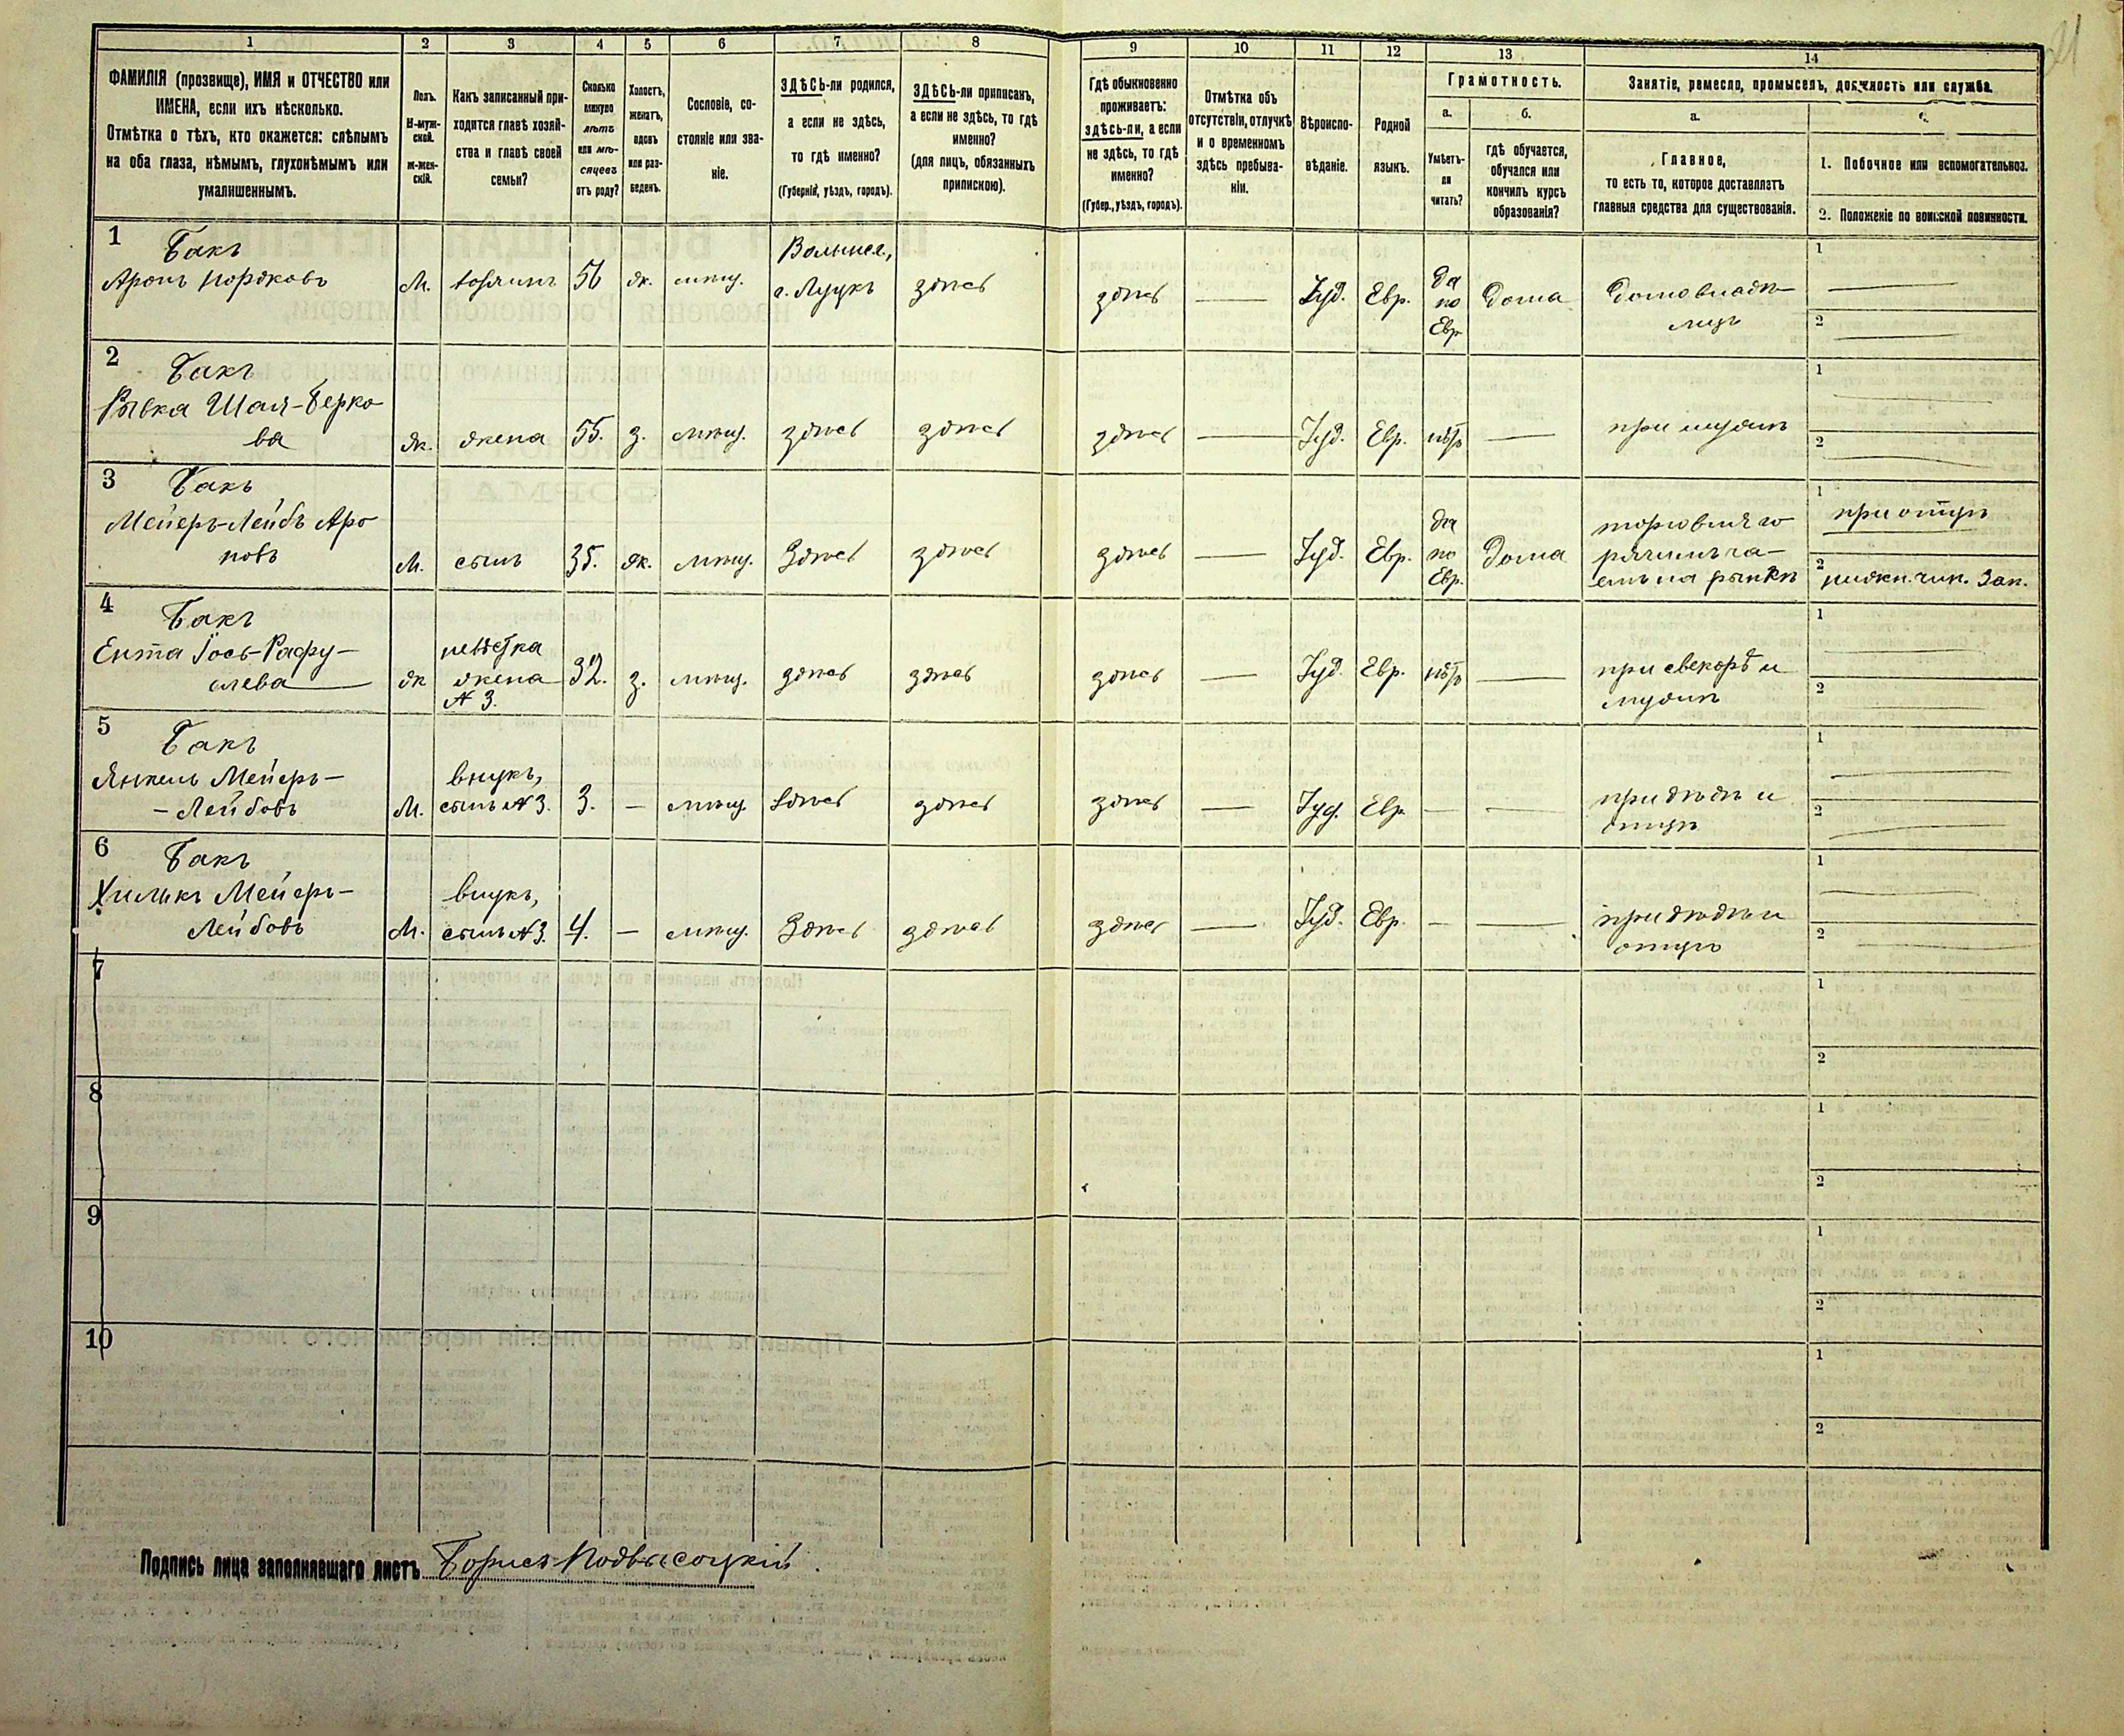 21
1 2 3 4 5 6 7 8 9 10 11 12 13 14
ФАМИЛІЯ (прозвище), ИМЯ и ОТЧЕСТВО или
ИМЕНА, если ихъ нѣсколько.
Отмѣтка о тѣхъ, кто окажется: слѣпымъ
на оба глаза, нѣмымъ, глухонѣмымъ или
умалишеннымъ.
Полъ.
М-муж-
ской.
ж-жен-
скій.
Какъ записанный при-
ходится главѣ хозяй-
ства и главѣ своей
семьи?
Сколько
минуло
лѣтъ
или мѣ-
сяцевъ
отъ роду?
Холостъ,
женатъ,
вдовъ
или раз-
веденъ.
Сословіе, со-
стояніе или зва-
ніе.
ЗДѢСЬ-ли родился,
а если не здѣсь,
то гдѣ именно?
(Губернія, уѣздъ, городъ).
ЗДѢСЬ-ли приписанъ,
а если не здѣсь, то гдѣ
именно?
(для лицъ, обязанныхъ
припискою).
Гдѣ обыкновенно
проживаетъ:
здѣсь-ли, а если
не здѣсь, то гдѣ
именно?
(Губер., уѣздъ, городъ).
Отмѣтка объ
отсутствіи, отлучкѣ
и о временномъ
здѣсь пребыва-
ніи.
Вѣроиспо-
вѣданіе.
Родной
языкъ.
Грамотность.
а.
Умѣетъ-
ли
читать?
б.
гдѣ обучается,
обучался или
кончилъ курсъ
образованія?
Занятіе, ремесло, промыселъ, должность или служба.
а.
Главное,
то есть то, которое доставляетъ
главныя средства для существованія.
1. Побочное или вспомогательное.
2. Положеніе по воинской повинности.
1 Бакъ
Аронъ Іордковъ
М. хозяинъ 56 ж. мѣщ.
Волынск.,
г. Луцкъ
здѣсь здѣсь — Іуд. Евр.
да
по
Евр
дома
домовладѣ-
лецъ
1 —
2 —
2 Бакъ
Рывка Шая-Берко
ва
ж. жена 55. з. мѣщ. здѣсь здѣсь здѣсь — Іуд. Евр. нѣтъ — при мужѣ
1 —
2 —
3 Бакъ
Мейеръ-Лейбъ Аро
новъ
М. сынъ 35. ж. мѣщ. здѣсь здѣсь здѣсь — Іуд. Евр.
да
по
Евр.
дома
торговля го
рячимъ ча-
емъ на рынкѣ
1 при отцѣ
2 нижн. чин. Зап.
4 Бакъ
Ента Іось-Рафу-
илева
ж
невѣстка
жена
№ 3.
32. з. мѣщ. здѣсь здѣсь здѣсь — Іуд. Евр. нѣтъ —
при свекорѣ и
мужѣ
1
2 —
5 Бакъ
Янкель Мейеръ-
-Лейбовъ
М.
внукъ,
сынъ №3.
3. — мѣщ. здѣсь здѣсь здѣсь — Іуд. Евр. — —
при дѣдѣ и
отцѣ
1 —
2 —
6 Бакъ
Хилькъ Мейеръ-
Лейбовъ
М.
внукъ,
сынъ №3.
4. — мѣщ. здѣсь здѣсь здѣсь — Іуд. Евр. — —
при дѣдѣ и
отцѣ
1 —
2 —
7
1
2
8
1
2
9
1
2
10
1
2
Подпись лица заполнявшаго листъ Борисъ Подвысоцкій.